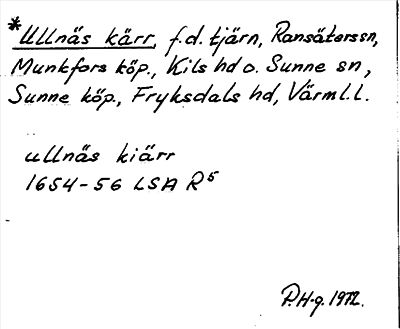 *Ullnäs kärr, f.d. tjärn, Ransäterssn,
Munkfors köp., Kils hd o. Sunne sn,
Sunne köp., Fryksdals hd, Värml.l.
ullnäs kiärr
1654-56 LSA R⁵
P.H-g. 1972.